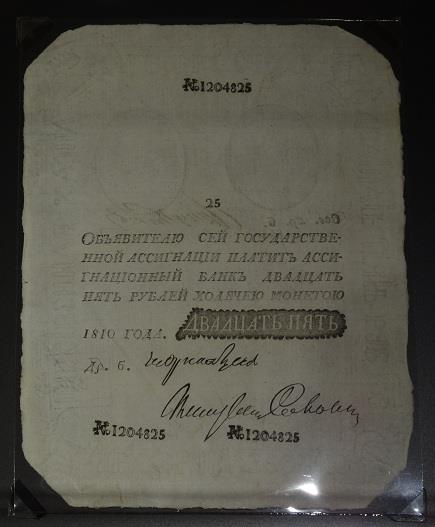 №1204825
25
Объявителю сей государстве-
нной ассигнацїи платитъ асси-
гнацїонный банкъ двадцать
пять рублей ходячею монетою
1810 года. ДВАДЦАТЬ ПЯТЬ
№1204825 №1204825